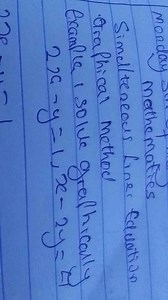 Monday
Mathematics
Simultaneous Linear Equation
Graphical Method
Example 1 solve graphically
2x - y = 1, x - 2y = 4
2x - y = 1